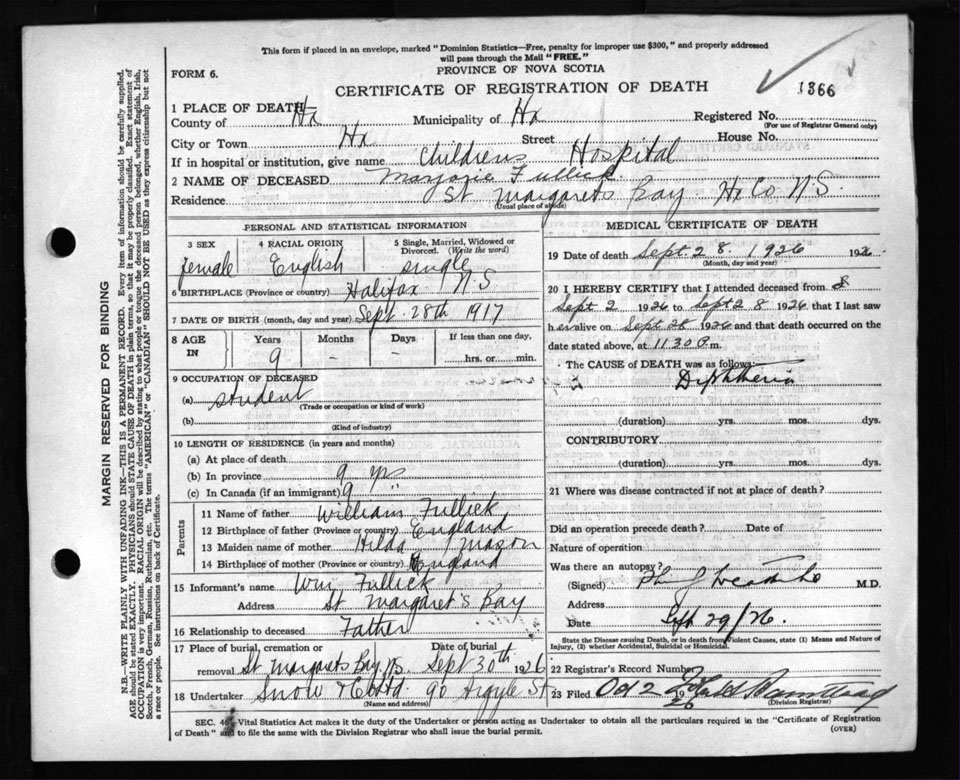 This form if placed in an envelope, marked "Dominion Statistics—Free, penalty for improper use $300," and properly addressed
will pass through the Mail "FREE."
PROVINCE OF NOVA SCOTIA
FORM 6.
CERTIFICATE OF REGISTRATION OF DEATH
1366
1 PLACE OF DEATH
County of Hx Municipality of Hx Registered No.
(For use of Registrar General only)
City or Town Hx Street House No.
If in hospital or institution, give name Childrens Hospital
2 NAME OF DECEASED Marjorie Fullick
Residence St Margarets Bay Hx Co N.S.
(Usual place of abode)
PERSONAL AND STATISTICAL INFORMATION
3 SEX 4 RACIAL ORIGIN 5 Single, Married, Widowed or Divorced. (Write the word)
female English single
6 BIRTHPLACE (Province or country) Halifax N.S
7 DATE OF BIRTH (month, day and year) Sept. 28th 1917
8 AGE IN Years Months Days If less than one day,
9 - - hrs. or min.
9 OCCUPATION OF DECEASED
(a) student
(Trade or occupation or kind of work)
(b)
(Kind of industry)
10 LENGTH OF RESIDENCE (in years and months)
(a) At place of death
(b) In province 9 yrs
(c) In Canada (if an immigrant) 9 "
Parents
11 Name of father William Fullick
12 Birthplace of father (Province or country) England
13 Maiden name of mother Hilda Mason
14 Birthplace of mother (Province or country) England
15 Informant's name Wm Fullick
Address St Margaret's Bay
16 Relationship to deceased Father
17 Place of burial, cremation or removal St Margarets Bay, Date of burial Sept 30th 1926
18 Undertaker Snow & Co Ltd 90 Argyle St
(Name and address)
MEDICAL CERTIFICATE OF DEATH
19 Date of death Sept. 28. 1926 1926
(Month, day and year)
20 I HEREBY CERTIFY that I attended deceased from
Sept 2 1926 to Sept 28 1926 that I last saw
her alive on Sept 28 1926 and that death occurred on the
date stated above, at 11 30 P.m.
The CAUSE OF DEATH was as follows:
Diphtheria
(duration) yrs. mos. dys.
CONTRIBUTORY
(duration) yrs. mos. dys.
21 Where was disease contracted if not at place of death?
Did an operation precede death? Date of
Nature of operation
Was there an autopsy?
(Signed) M.D.
Address
Date Sept 29/26.
State the Disease causing Death, or in death from Violent Causes, state (1) Means and Nature of
Injury, (2) whether Accidental, Suicidal or Homicidal.
22 Registrar's Record Number
23 Filed Oct 2 1926
(Division Registrar)
SEC. 46 Vital Statistics Act makes it the duty of the Undertaker or person acting as Undertaker to obtain all the particulars required in the "Certificate of Registration
of Death" and to file the same with the Division Registrar who shall issue the burial permit.
(OVER)
MARGIN RESERVED FOR BINDING
N.B.—WRITE PLAINLY WITH UNFADING INK—THIS IS A PERMANENT RECORD. Every item of information should be carefully supplied.
AGE should be stated EXACTLY. PHYSICIANS should STATE CAUSE OF DEATH in plain terms, so that it may be properly classified. Exact statement of
OCCUPATION is very important. RACIAL ORIGIN will be described by stating to what people or tongue the deceased person belonged, whether English, Irish,
Scotch, French, German, Russian, Ruthenian, etc. The terms "AMERICAN" or "CANADIAN" SHOULD NOT BE USED as they express citizenship but not
a race or people. See instructions on back of Certificate.